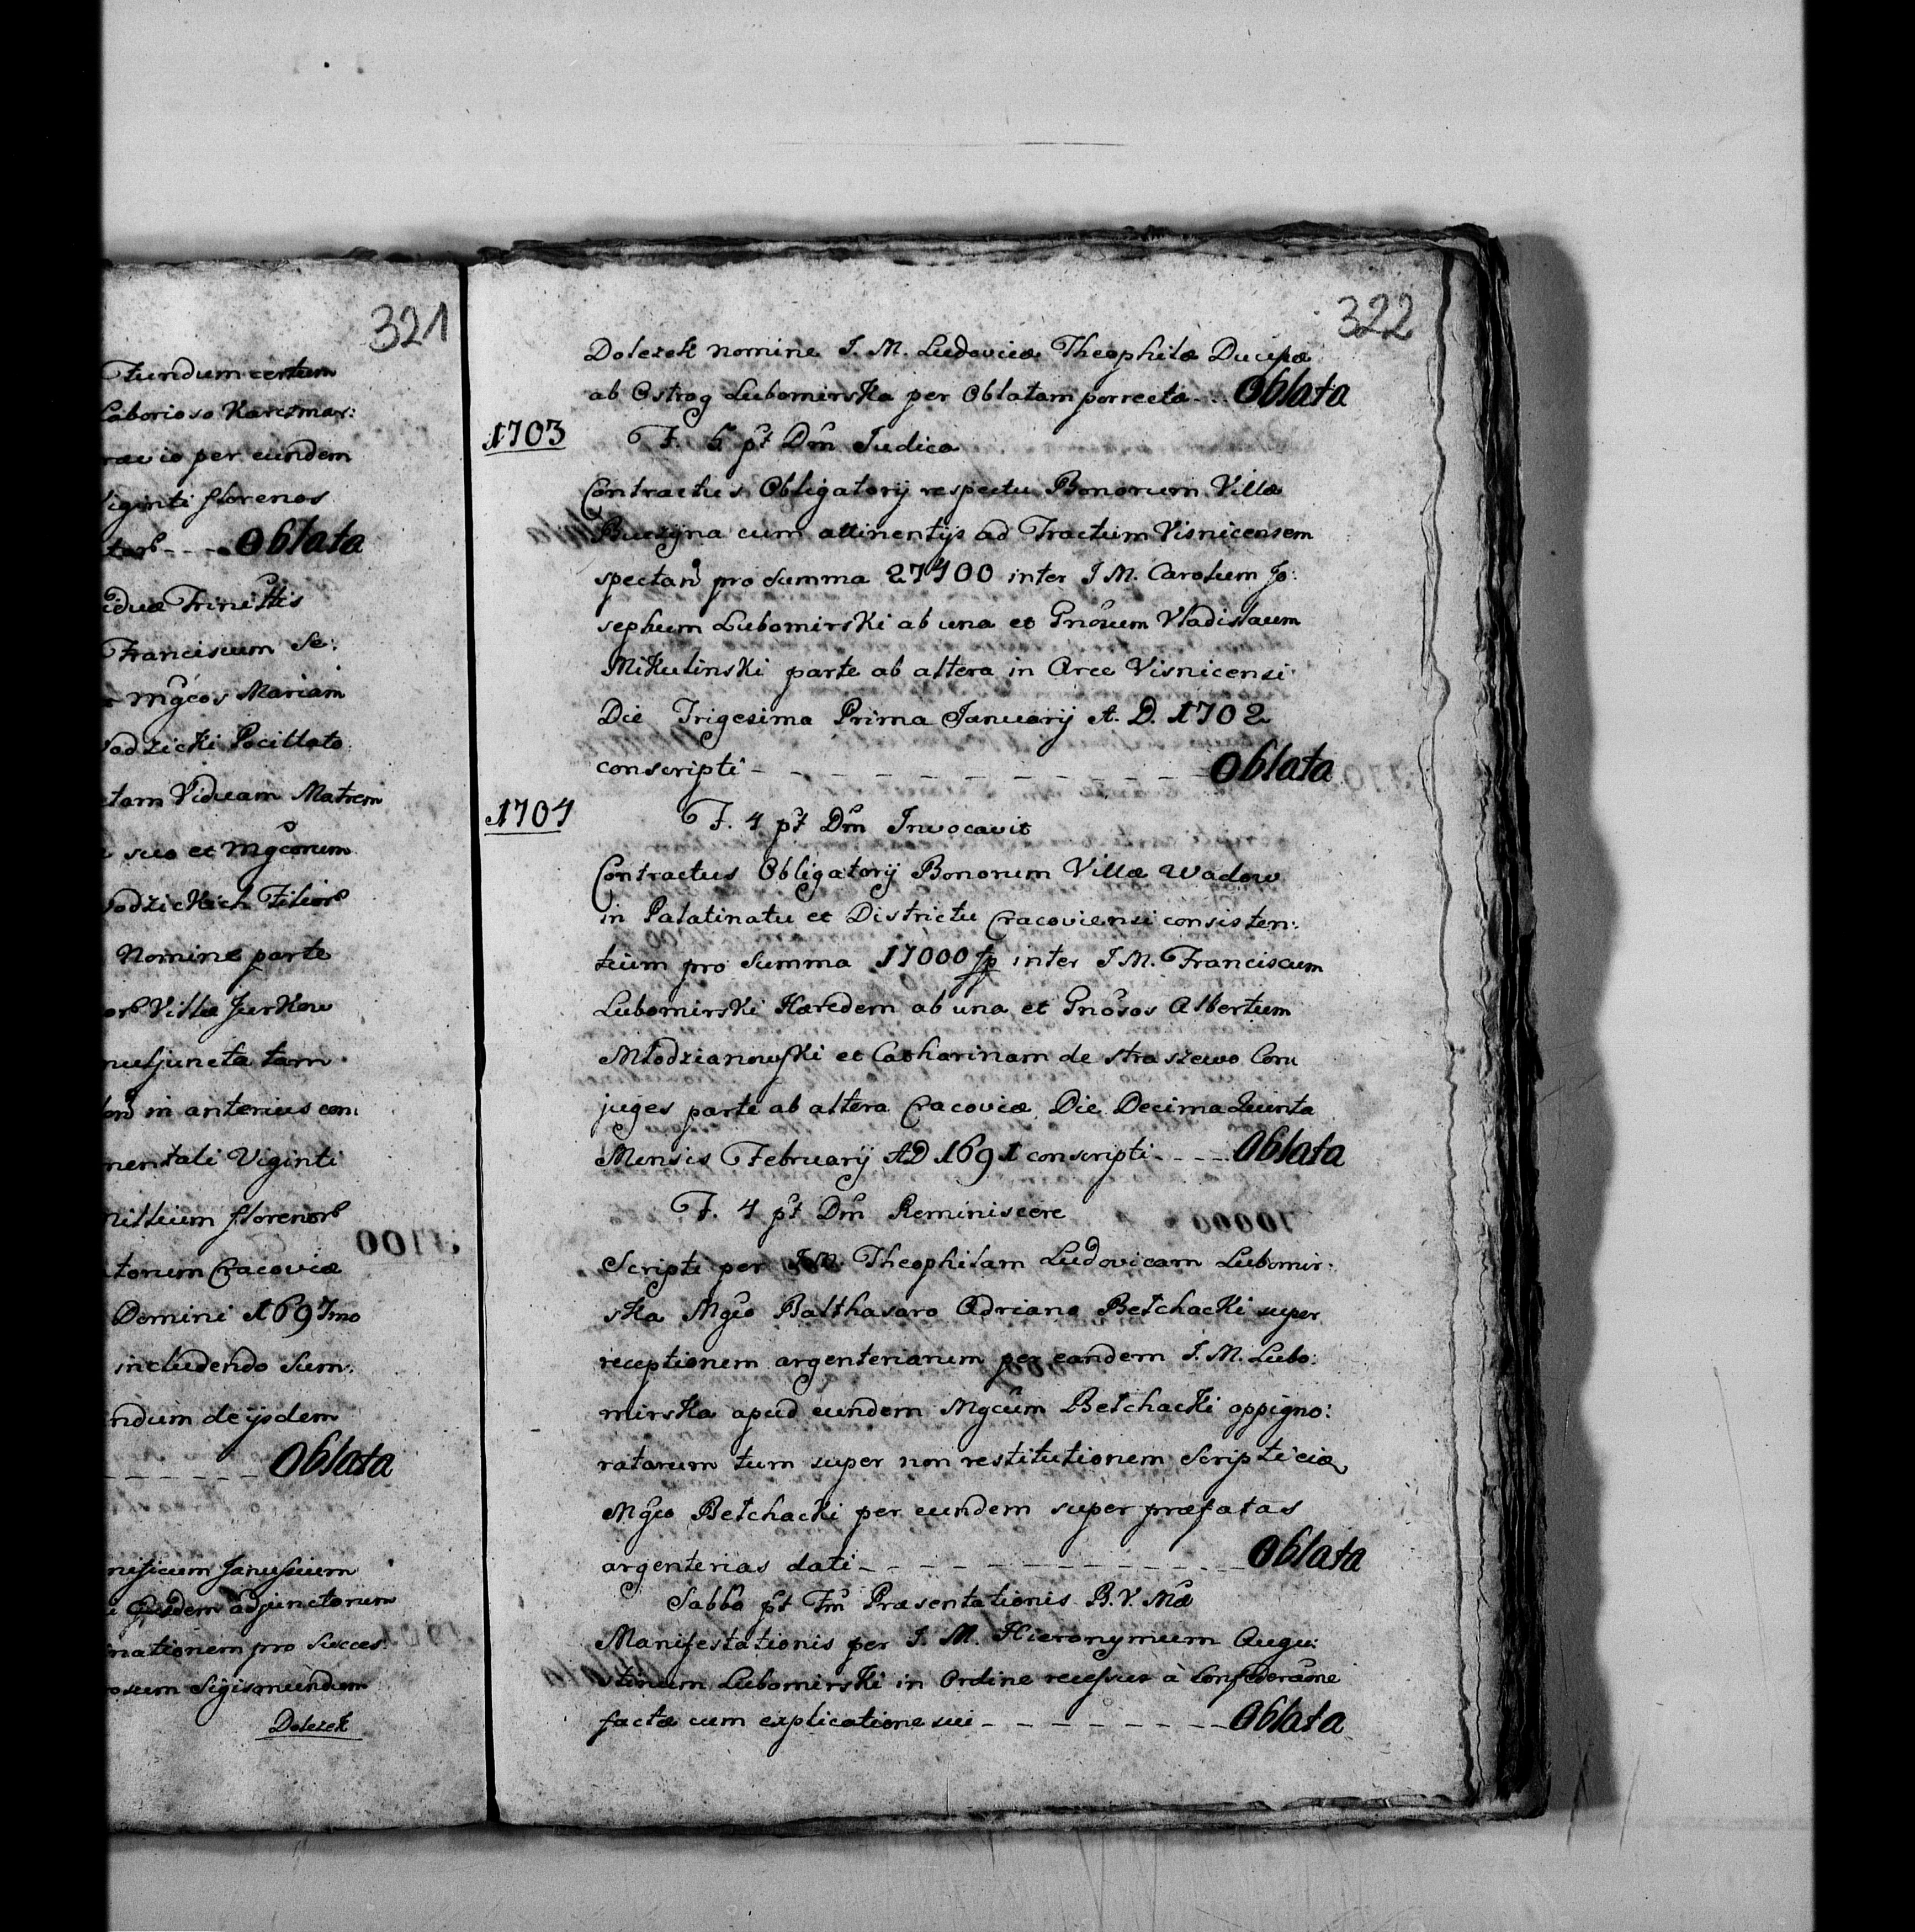 321
Fundum certum
Laborioso Karczmar:
per eundem
florenos
Oblata
Trinittis
Franciscum Se:
Mg̃cos Mariam
Pocillato
Viduam Matrem
suo et Mg̃corum
Filior̃
Nomine parte
Villa Jurkow
tam
in anterius con:
Viginti
florenor̃
Cracoviæ
Domini 1697mo
includendo Sum:
de ijsdem
Oblata
Janussium
adjunctorum
pro Succes:
Sigismundum
Dolezek
322
Dolezek nomine I. M. Ludovicæ Theophilæ Ducissæ
ab Ostrog Lubomirska per Oblatam porrecta - . . Oblata
1703 F. 5 pt̃ Dm̃ Iudica
Contractus Obligatorij respectu Bonorum Villæ
Buczyna cum attinentijs ad Tractum Visnicensem
spectan̄ pro Summa 27400 inter I M. Carolum Jo:
sephum Lubomirski ab una et Gnõsum Vladislaum
Mikulinski parte ab altera in Arce Visnicensi
Die Trigesima Prima Januarij A. D. 1702
conscripti - - - - - - - - - - Oblata
1704 F. 4 pt̃ Dm̃ Invocavit
Contractus Obligatorij Bonorum Villæ Wadow
in Palatinatu et Districtu Cracoviensi consisten:
tium pro Summa 17000 fp inter I M. Franciscum
Lubomirski Hæredem ab una et Gnõsos Albertum
Młodzianowski et Catharinam de Straszewo Con
juges parte ab altera Cracoviæ Die Decima Quinta
Mensis February AD 1691 conscripti - - - - Oblata
F. 4 pt̃ Dm̃ Reminiscere
Scripti per I M. Theophilam Ludovicam Lubomir:
ska Mg̃co Balthasaro Adriano Bełchacki super
receptionem argenteriarum per eandem I. M. Lubo:
mirska apud eundem Mg̃cum Bełchacki oppigno:
ratarum tum super non restitutionem Scripti ejæ
Mg̃co Bełchacki per eundem super præfatas
argenterias dati - - - - - - - - - - Oblata
Sabbõ pt̃ Fm̃ Præsentationis B. V. Mæ
Manifestationis per I. M. Hieronymum Augu:
stinum Lubomirski in Ordine recessus à Confederãone
factæ cum explicatione sui - - - - - - - - Oblata